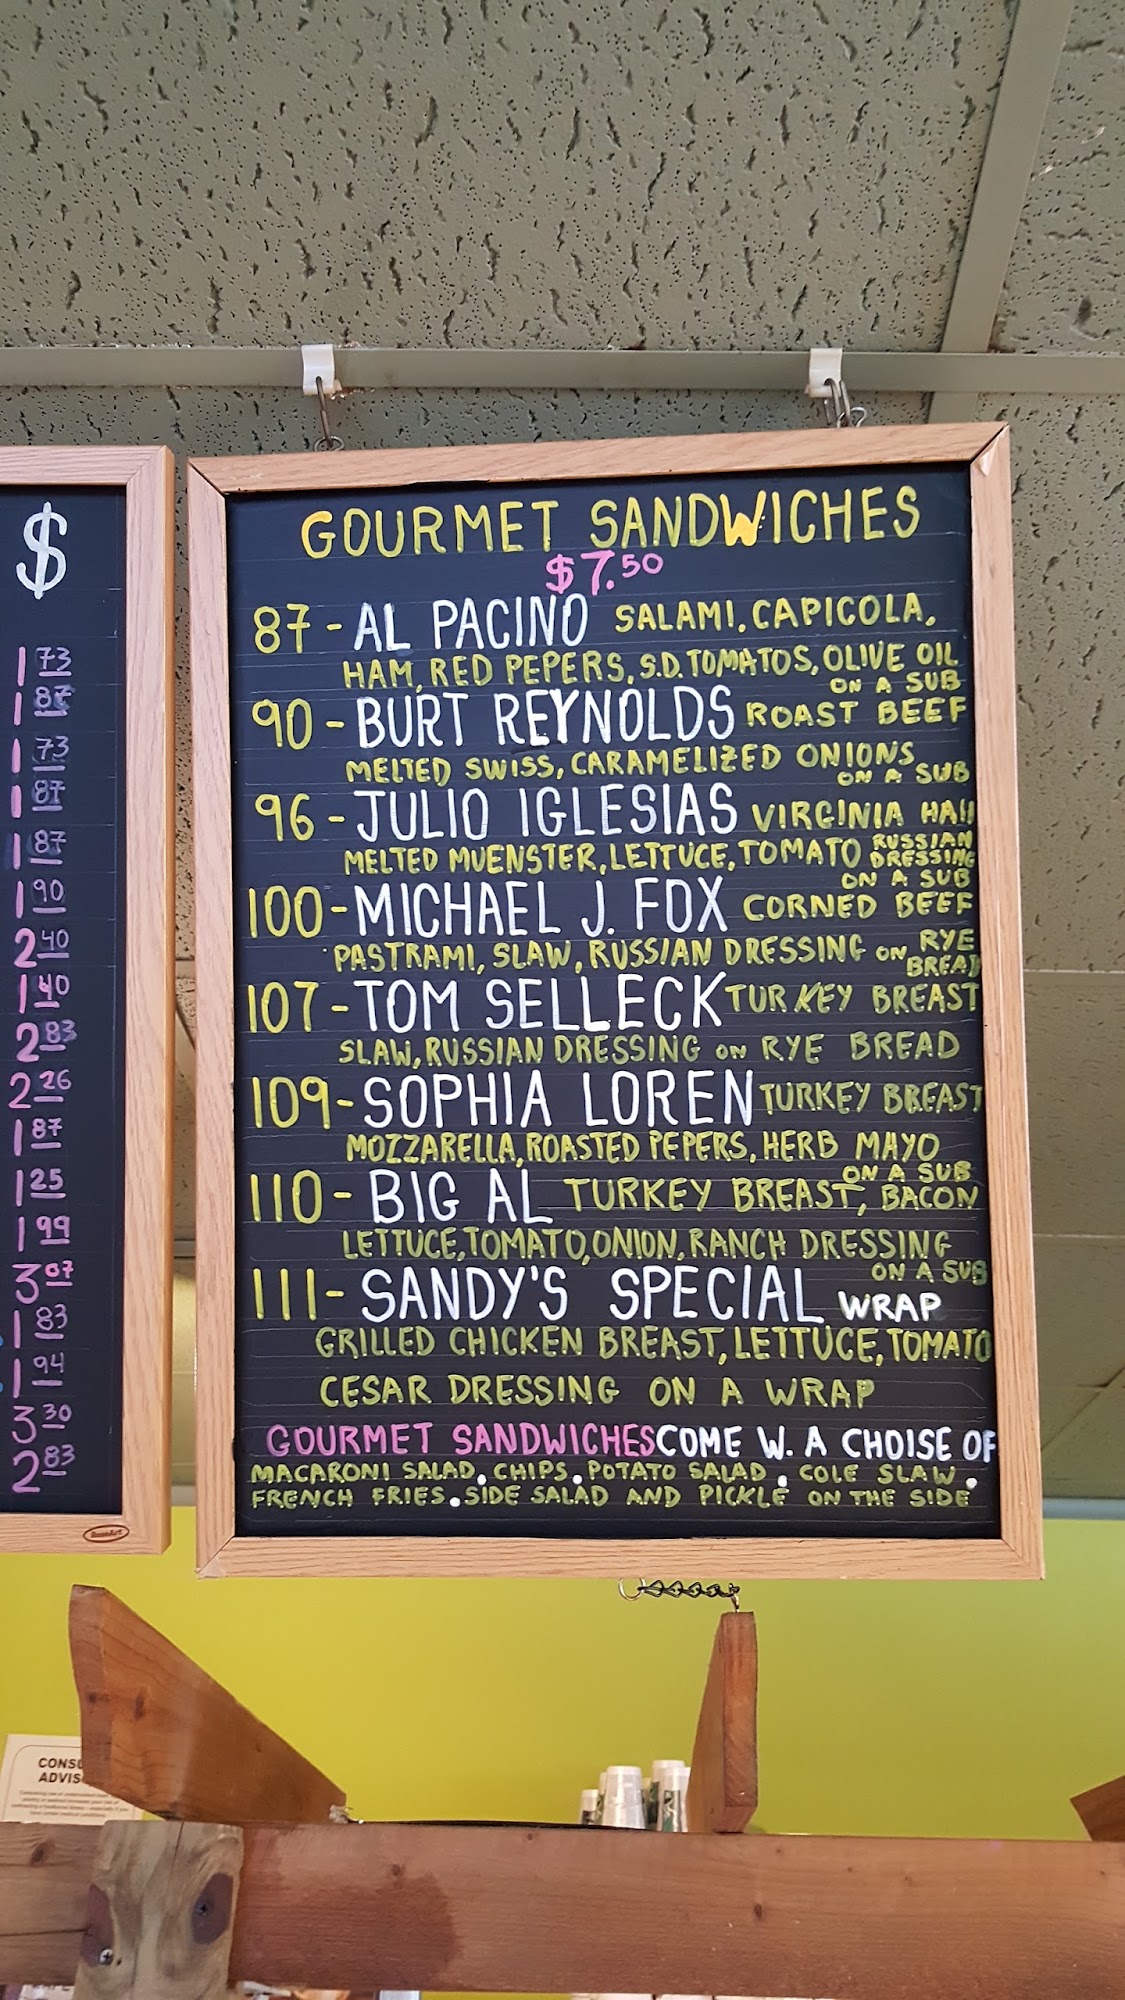 $
1 73
1 87
1 73
1 87
1 87
1 90
2 40
1 40
2 83
2 26
1 87
1 25
1 99
3 07
1 83
1 94
3 30
2 83
GOURMET SANDWICHES
$7.50
87 - AL PACINO SALAMI, CAPICOLA,
HAM, RED PEPERS, S.D. TOMATOS, OLIVE OIL
ON A SUB
90 - BURT REYNOLDS ROAST BEEF
MELTED SWISS, CARAMELIZED ONIONS
ON A SUB
96 - JULIO IGLESIAS VIRGINIA HAM
MELTED MUENSTER, LETTUCE, TOMATO RUSSIAN DRESSING
ON A SUB
100 - MICHAEL J. FOX CORNED BEEF
PASTRAMI, SLAW, RUSSIAN DRESSING ON RYE BREAD
107 - TOM SELLECK TURKEY BREAST
SLAW, RUSSIAN DRESSING ON RYE BREAD
109 - SOPHIA LOREN TURKEY BREAST
MOZZARELLA, ROASTED PEPERS, HERB MAYO
ON A SUB
110 - BIG AL TURKEY BREAST, BACON
LETTUCE, TOMATO, ONION, RANCH DRESSING
ON A SUB
111 - SANDY'S SPECIAL WRAP
GRILLED CHICKEN BREAST, LETTUCE, TOMATO
CESAR DRESSING ON A WRAP
GOURMET SANDWICHES COME W. A CHOISE OF
MACARONI SALAD. CHIPS. POTATO SALAD. COLE SLAW.
FRENCH FRIES. SIDE SALAD AND PICKLE ON THE SIDE
CONSU
ADVIS